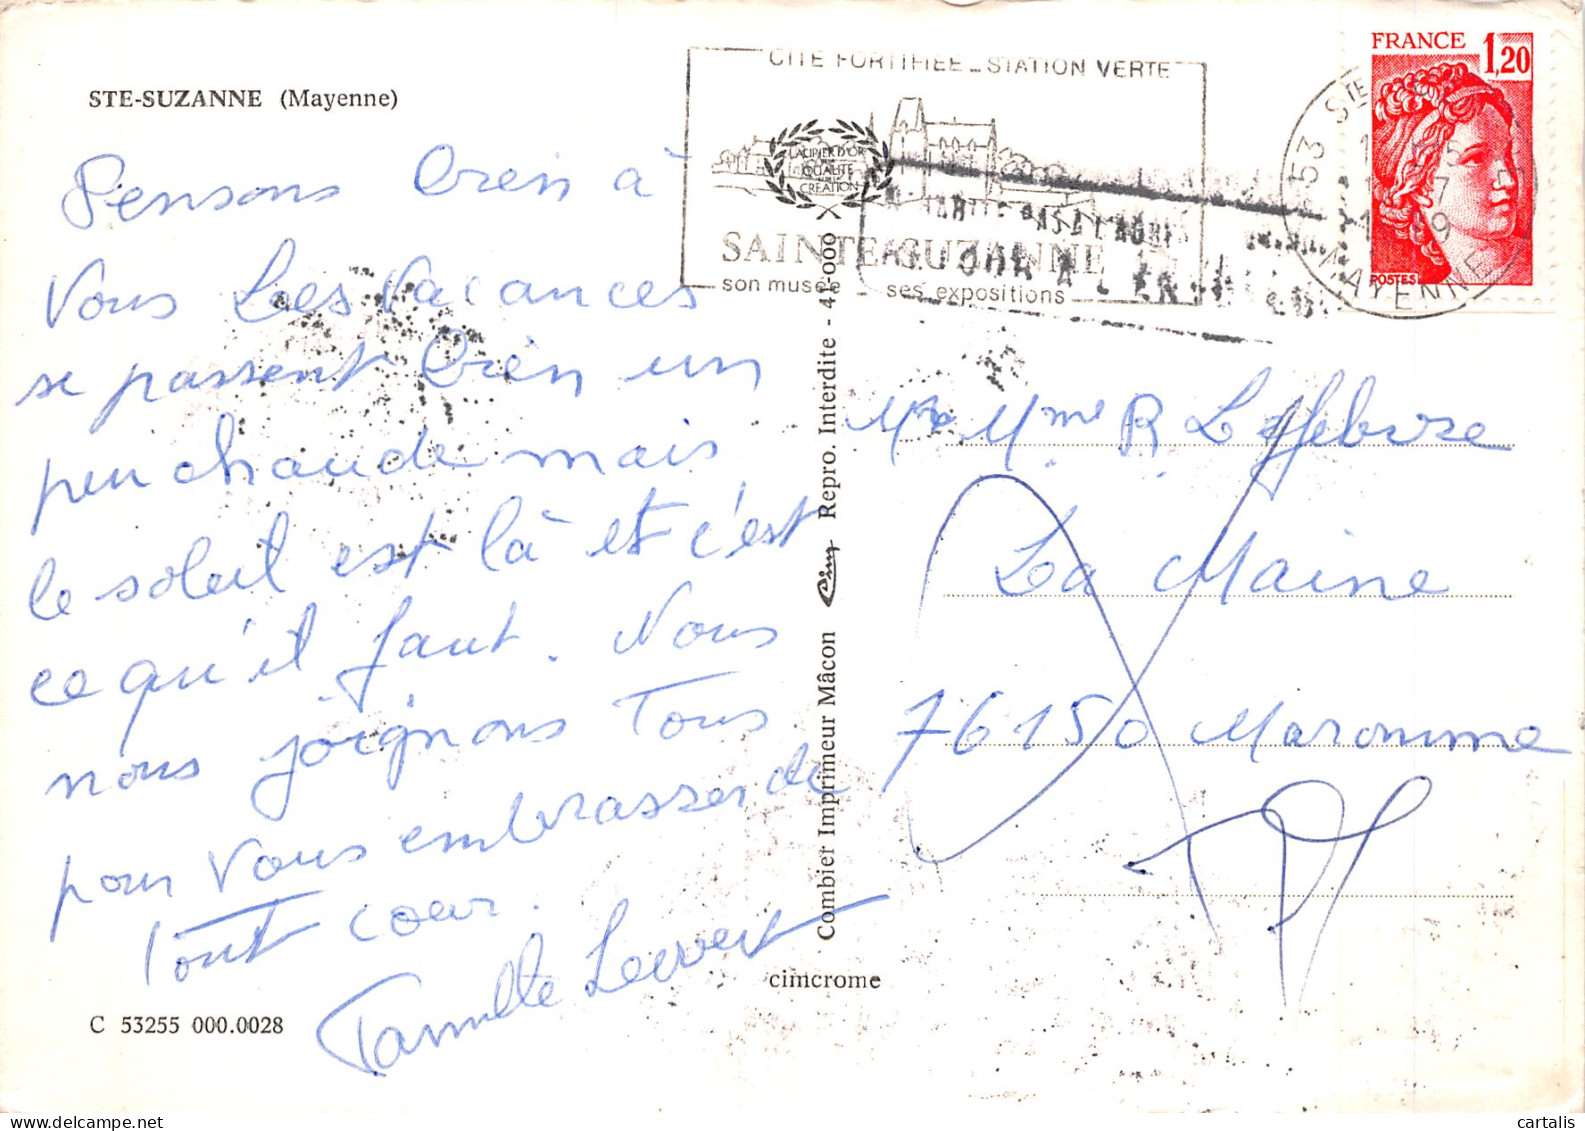 STE-SUZANNE (Mayenne)
Pensons bien à
vous Les vacances
se passent bien un
peu chaude mais
le soleil est là et c'est
ce qu'il faut. Nous
nous joignons Tous
pour vous embrasser de
Tout cœur.
Famille
C 53255 000.0028
cimcrome
Combier Imprimeur Mâcon Cim Repro. Interdite -
CITE FORTIFIEE _ STATION VERTE
LAURIER D'OR
QUALITÉ
CRÉATION
SAINTE-SUZANNE
son musée ses expositions
53 STE
MAYENNE
FRANCE 1,20
POSTES
Mr Mme R Lefebvre
La Maine
76150 Maromme
cartalis